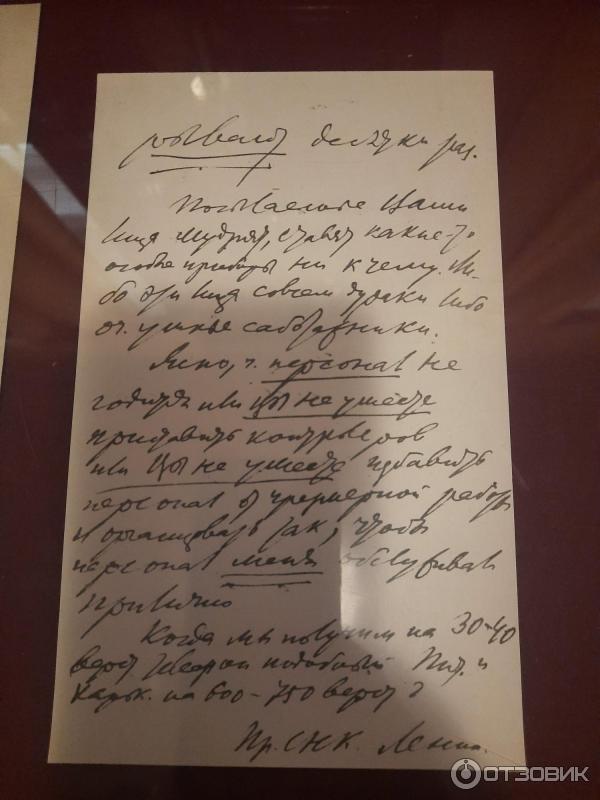 рывают десятки раз.
Посылаемые Вами
лица мудрят, ставят какие-то
особые приборы ни к чему. Ли-
бо эти лица совсем дураки либо
оч. умные саботажники.
Ясно, ч. персонал не
годится или Вы не умеете
приставить контролеров
или Вы не умеете избавить
персонал от чрезмерной работы
и организовать так, чтобы
персонал меня обслуживал
прилично
Когда мы получим на 30-40
верст телефон подобный Пит. и
Харьк. на 600-750 верст?
Пр. СНК. Ленин.
ОТЗОВИК